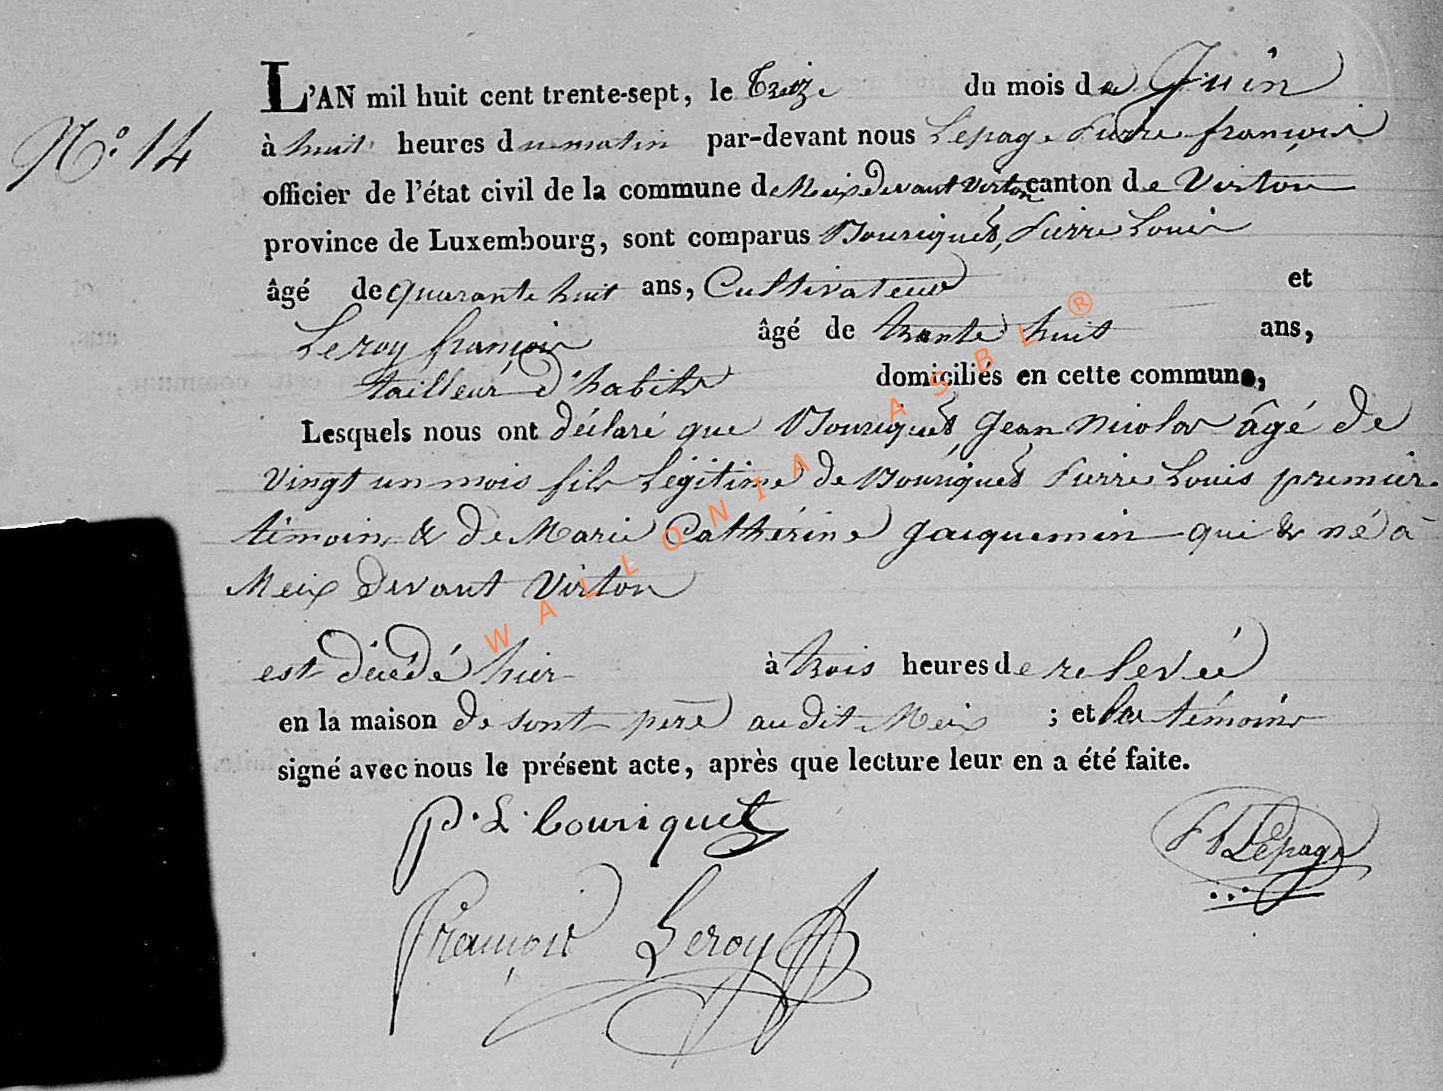 L'AN mil huit cent trente-sept, le Treize du mois de Juin
N.° 14
à huit heures du matin par-devant nous Lepage Pierre françois
officier de l'état civil de la commune de Meix devant Virton canton de Virton
province de Luxembourg, sont comparus Bouriquet, Pierre Louis
âgé de quarante huit ans, Cultivateur et
Leroy françois âgé de trente huit ans,
tailleur d'habits domiciliés en cette commune,
Lesquels nous ont déclaré que Bouriquet, Jean Nicolas âgé de
Vingt un mois fils Légitime de Bouriquet Pierre Louis premier
témoin & de Marie Cathérine Jacquemin qui & né à
Meix devant Virton
est décédé hier à trois heures de relevée
en la maison de sont père audit Meix ; et les témoins
signé avec nous le présent acte, après que lecture leur en a été faite.
P. L. bouriquet
Lepage
François Leroy
WALLONIA ASBL ®